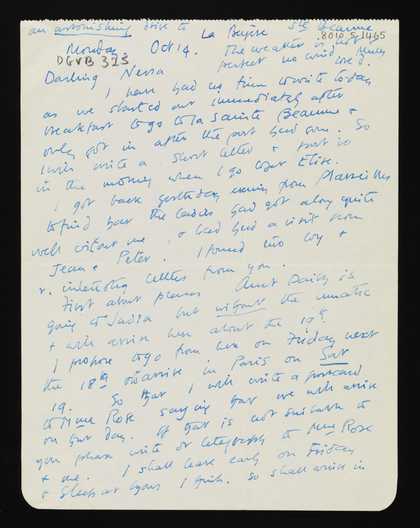 an astonishing drive to La Ste Beaume
8010.5.1465
Monday Oct 14. The weather is
DGVB 323 perfect no wind
Darling Nessa
I have had no time to write today
as we started out immediately after
breakfast to go to la Sainte Beaume &
only got in after the post had gone. So
I will write a short letter & post it
in the morning when I go to get Elise.
I got back yesterday evening from Marseilles
to find that the ladies had got along quite
well without me & had had a visit from
Jean & Peter. I found two long &
v. interesting letters from you.
First about plans Aunt Daisy is
going to India but without the lunatic
& will arrive here about the 17th.
I propose to go from here on Friday next
the 18th & arrive in Paris on Sat
19. So that I will write a postcard
to Mme Rose saying that we will arrive
on that day. If that is not suitable to
you please write or telegraph to Mme Rose
& me. I shall leave early on Friday
& sleep at Lyons I think. So shall arrive in